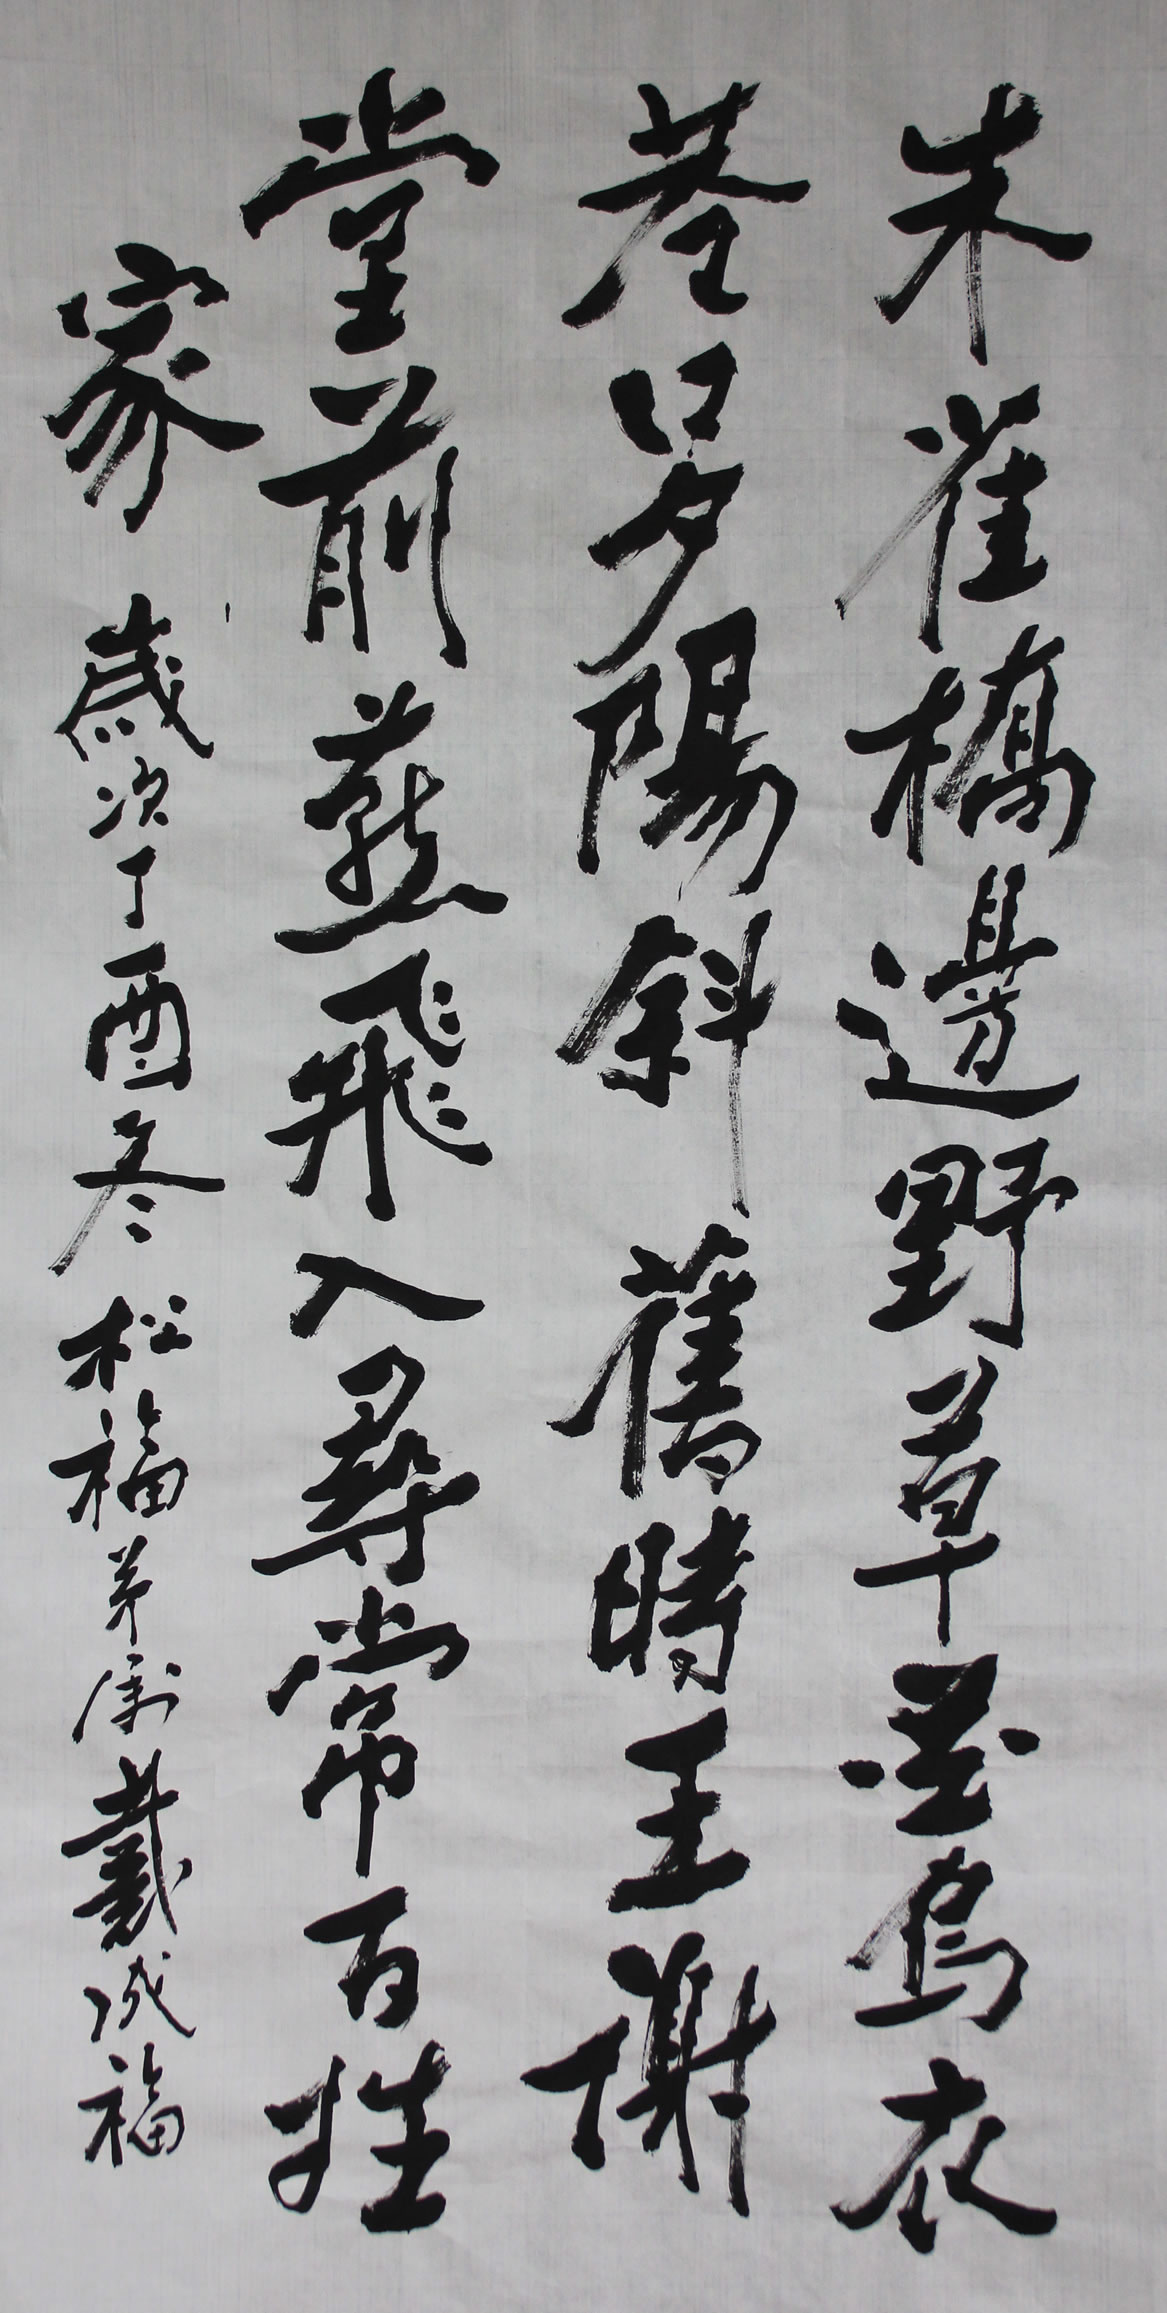 朱雀橋邊野草花烏衣
巷口夕陽斜舊時王謝
堂前燕飛入尋常百姓
家 歲次丁酉冬 松福弟属 戴成福